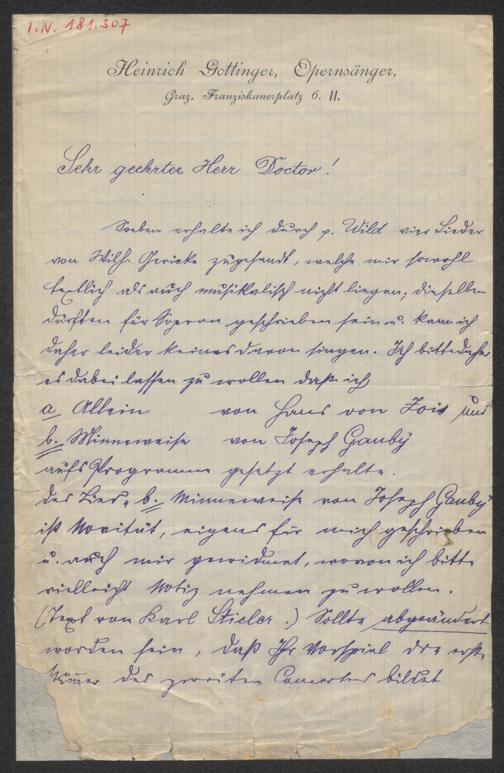 I.N. 181.307
Heinrich Gottinger, Opernsänger,
Graz, Franziskanerplatz 6. II.
Sehr geehrter Herr Doctor!
Soeben erhalte ich durch p. Wild vier Lieder
von Wilh. Gericke zugesandt, welche mir sowohl
textlich als auch musikalisch nicht liegen; dieselben
dürften für Sopran geschrieben sein u. kann ich
daher leider keines davon singen. Ich bitte daher
es dabei lassen zu wollen daß ich
a Allein von Hans von Zois und
b. Minneweise von Joseph Gauby
aufs Programm gesetzt erhalte.
Das Lied b. Minneweise von Joseph Gauby
ist Novität, eigens für mich geschrieben
u. auch mir gewidmet, wovon ich bitte
vielleicht Notiz nehmen zu wollen.
(Text von Karl Stieler.) Sollte abgeändert
worden sein, daß Ihr Vorspiel die erste
Numer des zweiten Concertes bildet